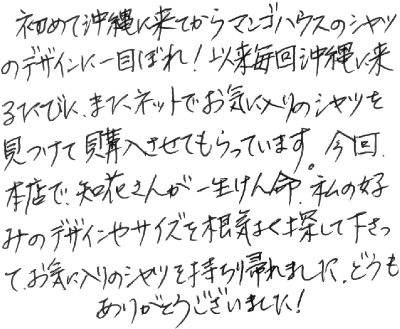 初めて沖縄に来てからマンゴハウスのシャツ
のデザインに一目ぼれ！以来毎回沖縄に来
るたびに、またネットでお気に入りのシャツを
見つけて購入させてもらっています。今回、
本店で、知花さんが一生けん命、私の好
みのデザインやサイズを根気よく探して下さっ
て、お気に入りのシャツを持ち帰れました。どうも
ありがとうございました！